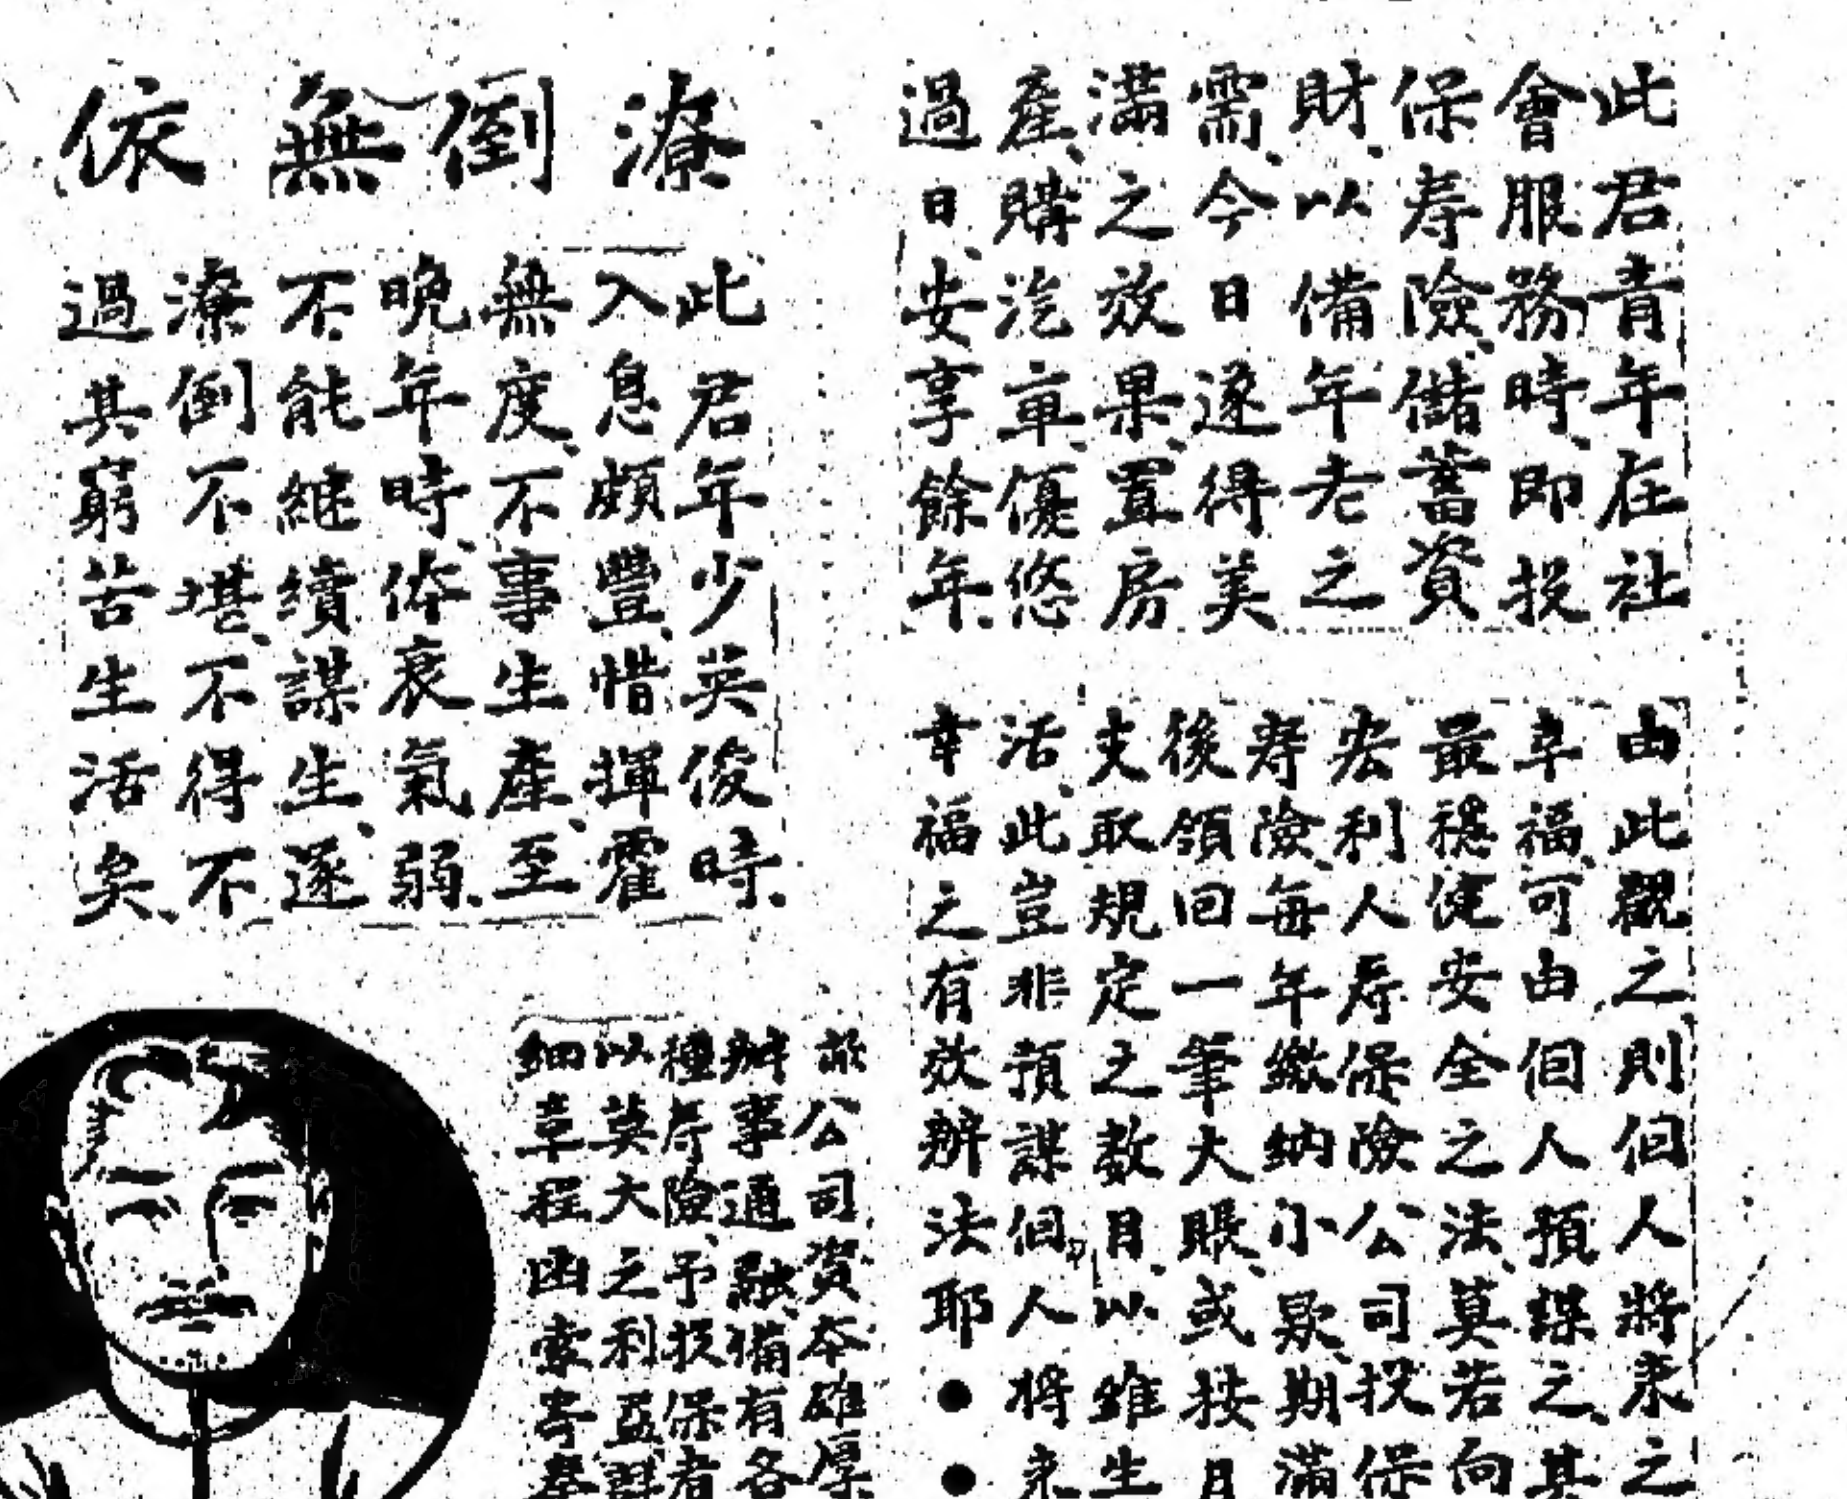 此君青年在社
會服務時、即投
保寿險、儲蓄資
財、以備年老之
需、今日遂得美
滿之效果、置房
產、購汽車、優悠
過日、安享餘年.
由此觀之則個人將來之
幸福、可由個人預謀之、其
最穩健安全之法、莫若向
宏利人寿保險公司投保
寿險、每年繳納小欵、期滿
後領回一筆大賬、或按月
支取規定之數目、以維生
活、此豈非預謀個人將來
幸福之有效辦法耶●●
潦倒無依
此君年少英俊時.
入息頗豐、惜揮霍
無度、不事生產、至
晚年時、体衰氣弱.
不能継續謀生、遂
潦倒不堪、不得不
過其窮苦生活矣、
該公司資本雄厚
辦事通融、備有各
種寿險、予投保者
以莫大之利益、詳
細章程函索寄奉